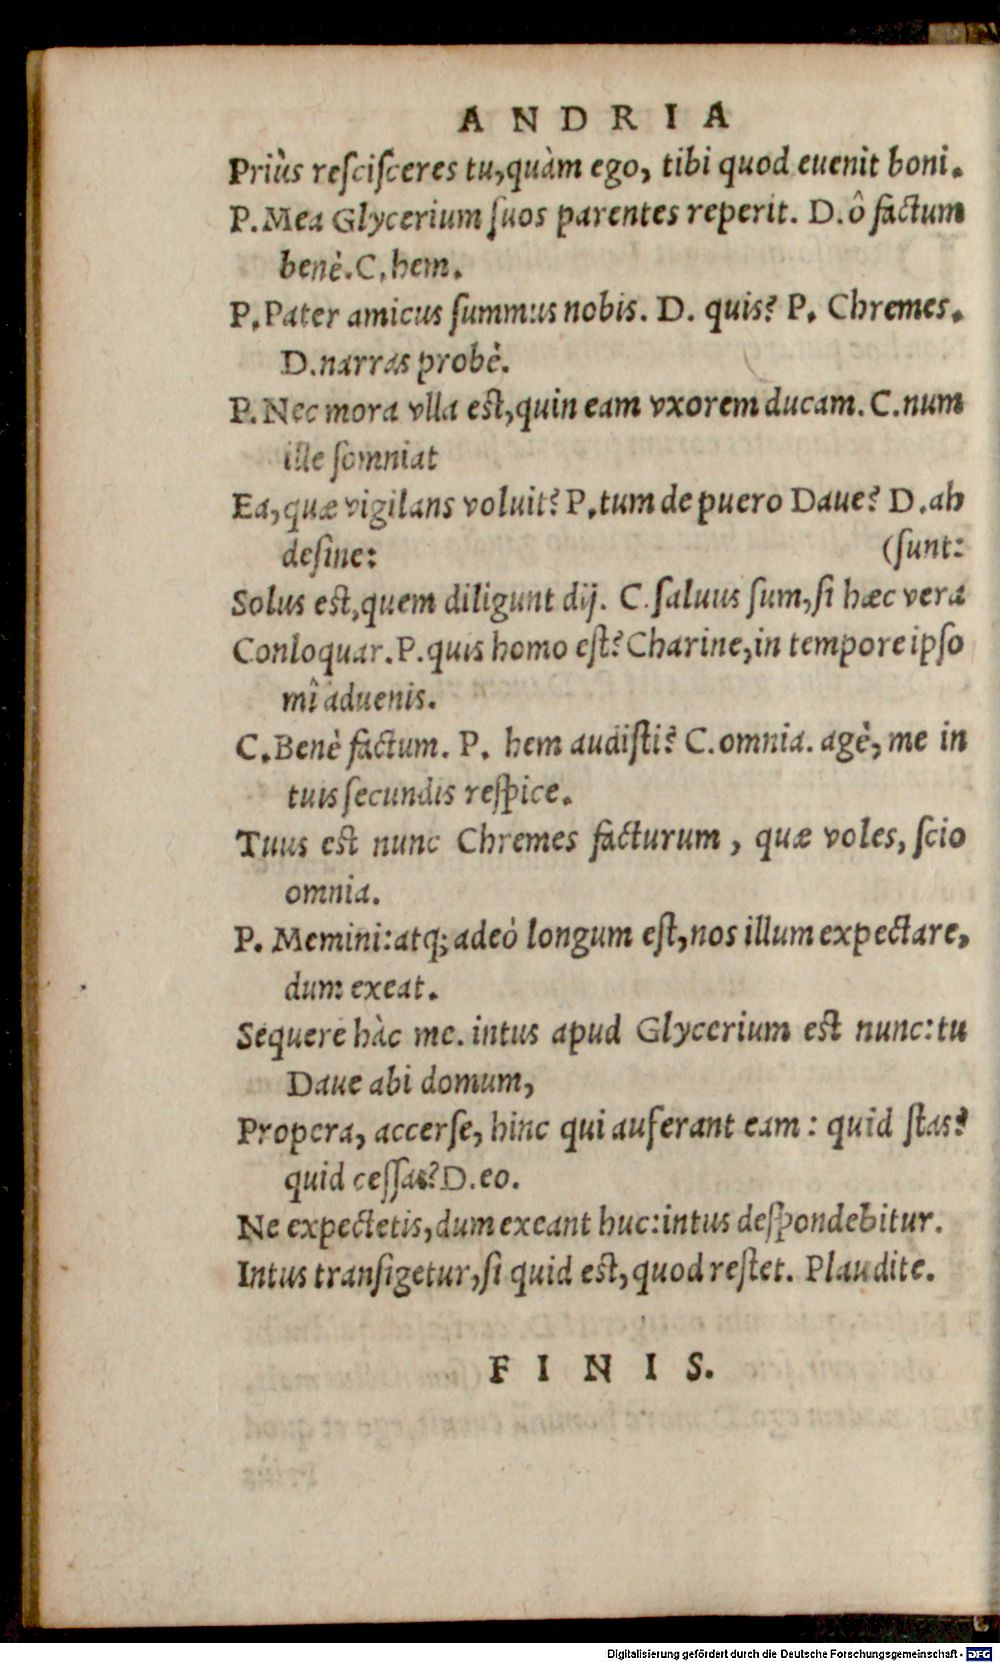 ANDRIA
Priùs reſciſceres tu, quàm ego, tibi quod euenit boni.
P. Mea Glycerium ſuos parentes reperit. D. ô factum
benè. C. hem.
P. Pater amicus ſummus nobis. D. quis? P. Chremes.
D. narras probè.
P. Nec mora vlla eſt, quin eam vxorem ducam. C. num
ille ſomniat
Ea, quæ vigilans voluit? P. tum de puero Daue? D. ah
deſine: (ſunt:
Solus eſt, quem diligunt dij. C. ſaluus ſum, ſi hæc vera
Conloquar. P. quis homo eſt? Charine, in tempore ipſo
mî aduenis.
C. Benè factum. P. hem audiſti? C. omnia. agè, me in
tuis ſecundis reſpice.
Tuus eſt nunc Chremes facturum, quæ voles, ſcio
omnia.
P. Memini: atq; adeò longum eſt, nos illum expectare,
dum exeat.
Sequere hàc me. intus apud Glycerium eſt nunc: tu
Daue abi domum,
Propera, accerſe, hinc qui auferant eam: quid ſtas?
quid ceſſas? D. eo.
Ne expectetis, dum exeant huc: intus deſpondebitur.
Intus tranſigetur, ſi quid eſt, quod reſtet. Plaudite.
FINIS.
Digitalisierung gefördert durch die Deutsche Forschungsgemeinschaft - DFG